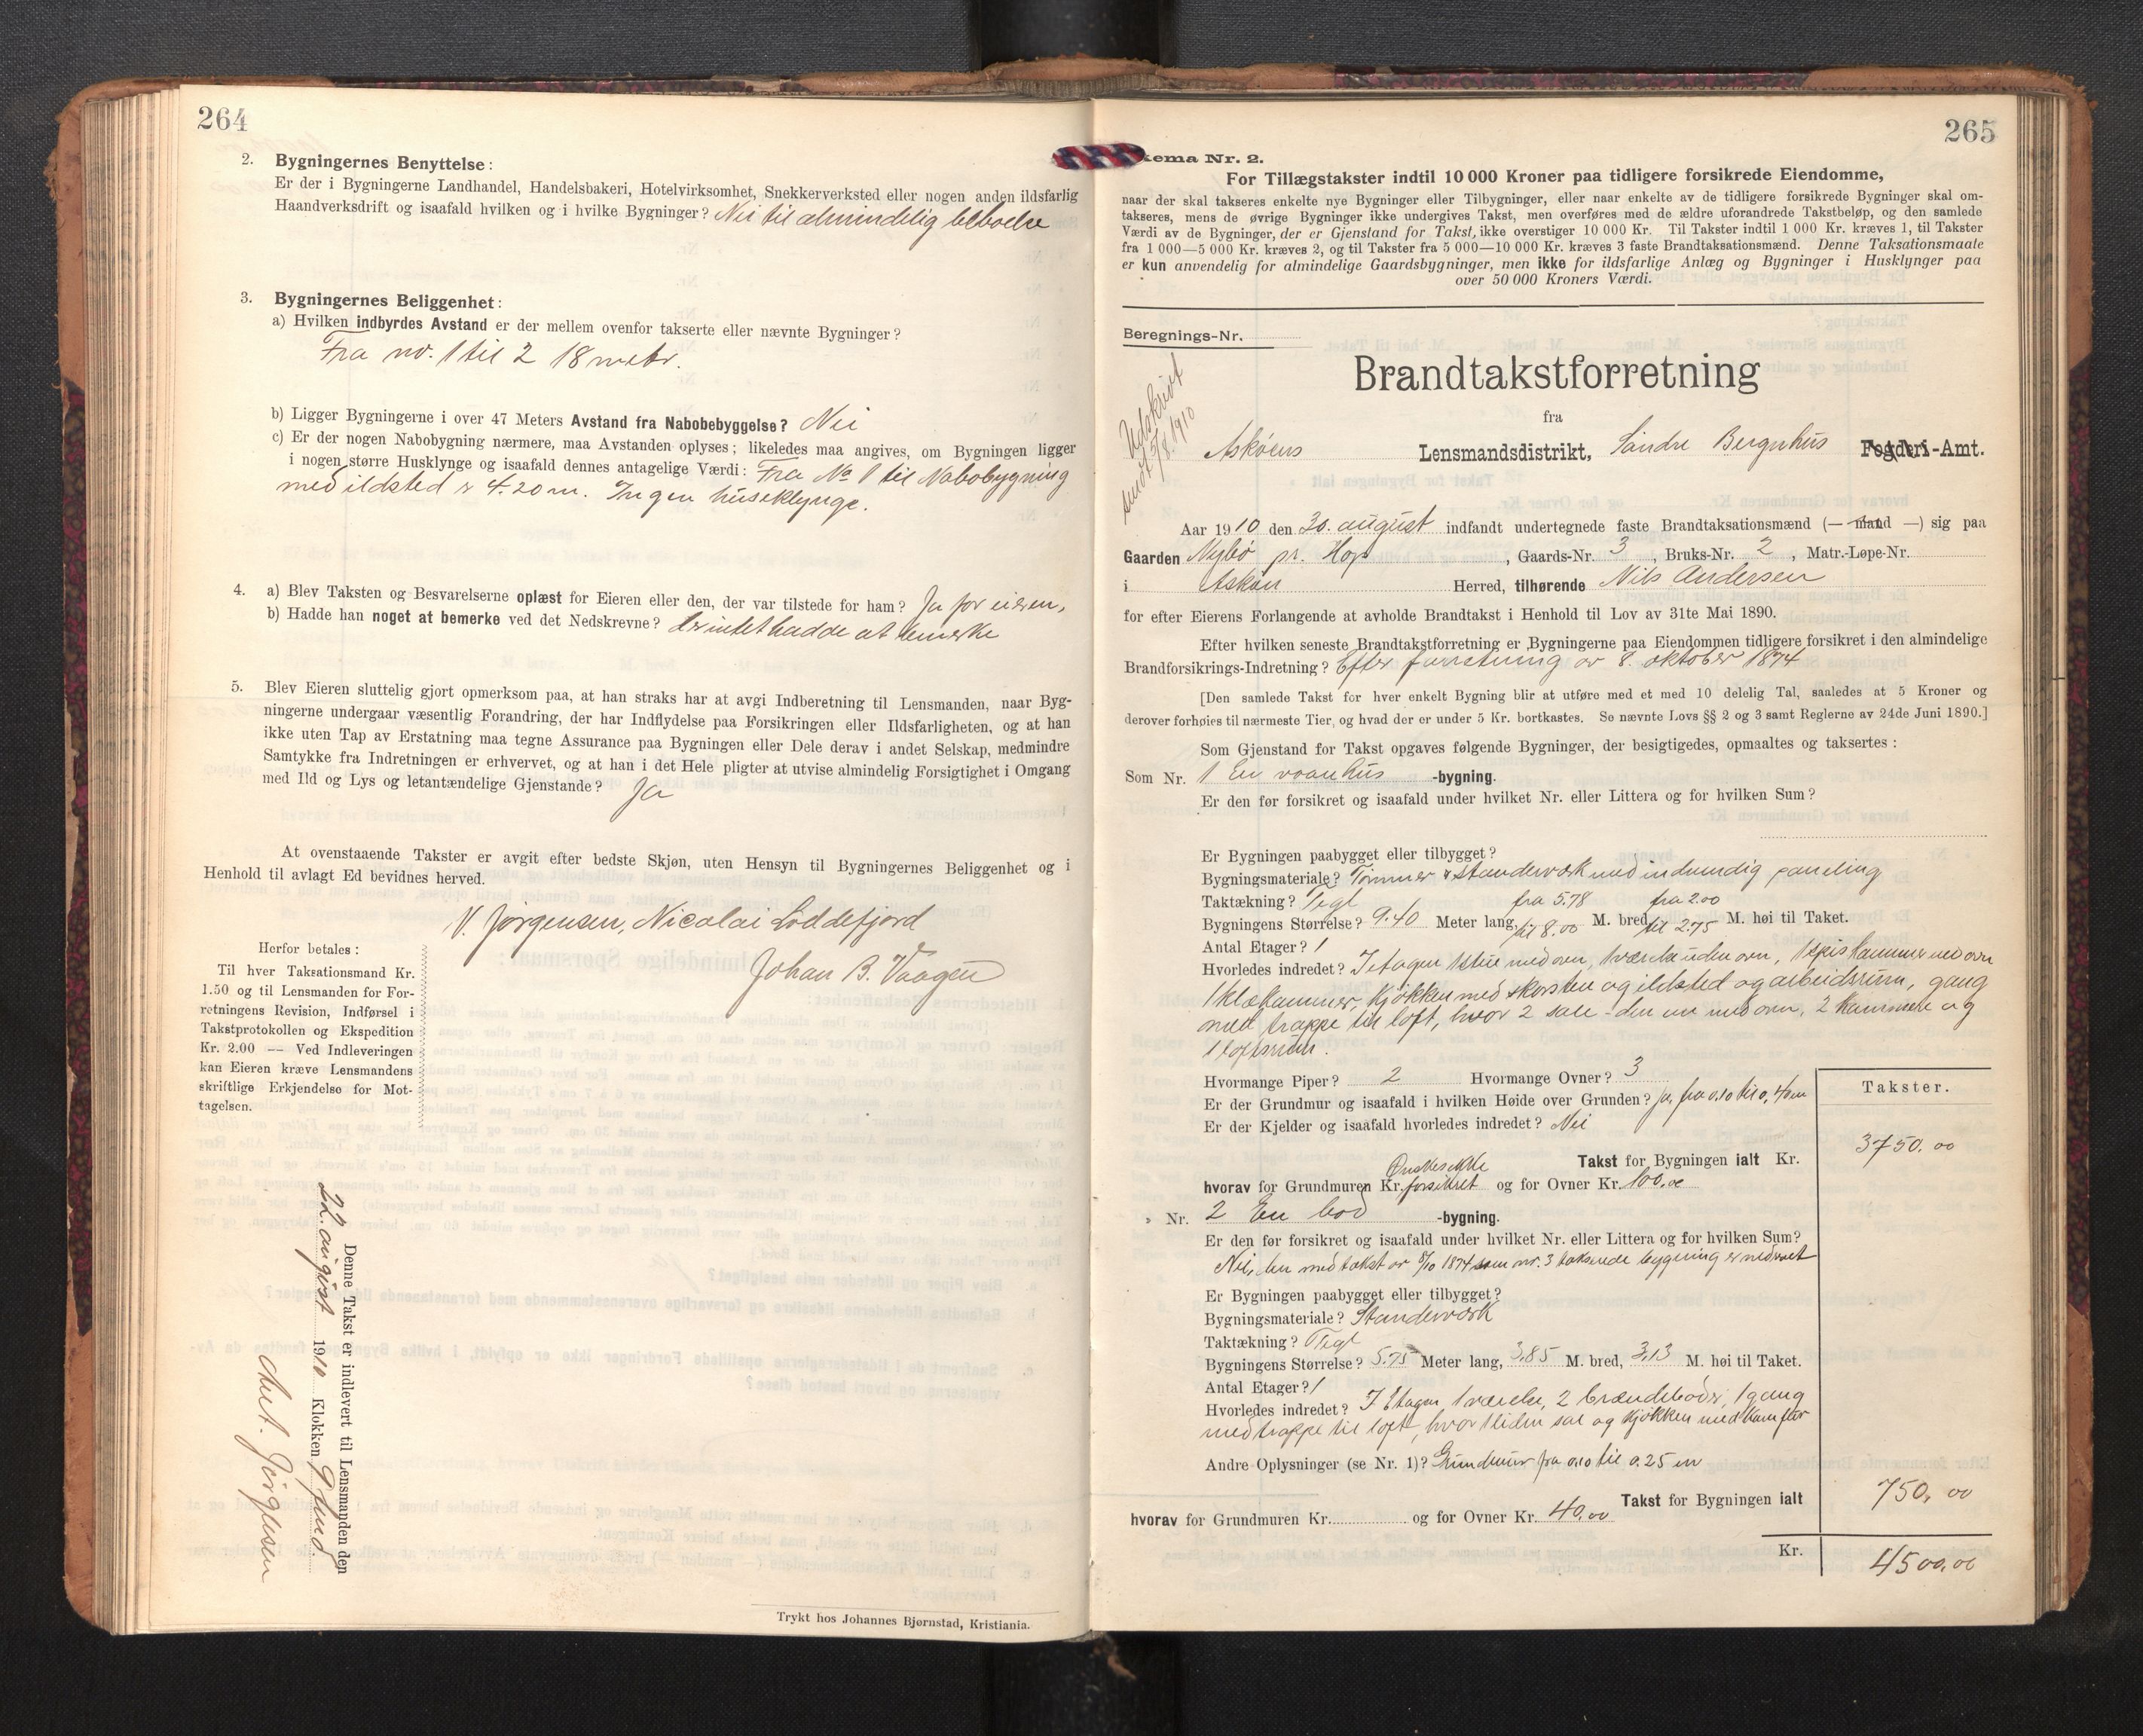 264
2. Bygningernes Benyttelse:
Er der i Bygningerne Landhandel, Handelsbakeri, Hotelvirksomhet, Snekkerverksted eller nogen anden ildsfarlig
Haandverksdrift og isaafald hvilken og i hvilke Bygninger? Nei til almindelig beboelse
3. Bygningernes Beliggenhet:
a) Hvilken indbyrdes Avstand er der mellem ovenfor takserte eller nævnte Bygninger?
Fra nr. 1 til 2 18 metr.
b) Ligger Bygningerne i over 47 Meters Avstand fra Nabobebyggelse? Nei
c) Er der nogen Nabobygning nærmere, maa Avstanden oplyses; likeledes maa angives, om Bygningen ligger
i nogen større Husklynge og isaafald dennes antagelige Værdi: Fra No 1 til Nabobygning
med ildsted er 4.20 m. Ingen huseklynge.
4. a) Blev Taksten og Besvarelserne oplæst for Eieren eller den, der var tilstede for ham? Ja for eieren,
b) Hadde han noget at bemerke ved det Nedskrevne? der intet hadde at bemerke
5. Blev Eieren sluttelig gjort opmerksom paa, at han straks har at avgi Indberetning til Lensmanden, naar Byg-
ningerne undergaar væsentlig Forandring, der har Indflydelse paa Forsikringen eller Ildsfarligheten, og at han
ikke uten Tap av Erstatning maa tegne Assurance paa Bygningen eller Dele derav i andet Selskap, medmindre
Samtykke fra Indretningen er erhvervet, og at han i det Hele pligter at utvise almindelig Forsigtighet i Omgang
med Ild og Lys og letantændelige Gjenstande? Ja
At ovenstaaende Takster er avgit efter bedste Skjøn, uten Hensyn til Bygningernes Beliggenhet og i
Henhold til avlagt Ed bevidnes herved.
V. Jørgensen, Nicolai Loddefjord
Johan B. Vaagen
Herfor betales:
Til hver Taksationsmand Kr.
1.50 og til Lensmanden for For-
retningens Revision, Indførsel i
Takstprotokollen og Ekspedition
Kr. 2.00 — Ved Indleveringen
kan Eieren kræve Lensmandens
skriftlige Erkjendelse for Mot-
tagelsen.
Denne Takst er indlevert til Lensmanden den
22 august 1910 Klokken 9 fmd.
Chr. Jørgensen
Trykt hos Johannes Bjørnstad, Kristiania.
265
kema Nr. 2.
For Tillægstakster indtil 10 000 Kroner paa tidligere forsikrede Eiendomme,
naar der skal takseres enkelte nye Bygninger eller Tilbygninger, eller naar enkelte av de tidligere forsikrede Bygninger skal om-
takseres, mens de øvrige Bygninger ikke undergives Takst, men overføres med de ældre uforandrede Takstbeløp, og den samlede
Værdi av de Bygninger, der er Gjenstand for Takst, ikke overstiger 10 000 Kr. Til Takster indtil 1 000 Kr. kræves 1, til Takster
fra 1 000—5 000 Kr. kræves 2, og til Takster fra 5 000—10 000 Kr. kræves 3 faste Brandtaksationsmænd. Denne Taksationsmaate
er kun anvendelig for almindelige Gaardsbygninger, men ikke for ildsfarlige Anlæg og Bygninger i Husklynger paa
over 50 000 Kroners Værdi.
Beregnings-Nr.
Udskrivt
sendt 5/8. 1910
Brandtakstforretning
fra
Askøens Lensmandsdistrikt, Søndre Bergenhus Fogderi-Amt.
Aar 1910 den 30. august indfandt undertegnede faste Brandtaksationsmænd (— mand —) sig paa
Gaarden Nybø pr. Hop, Gaards-Nr. 3, Bruks-Nr. 2, Matr.-Løpe-Nr.
i Askøen Herred, tilhørende Nils Andersen
for efter Eierens Forlangende at avholde Brandtakst i Henhold til Lov av 31te Mai 1890.
Efter hvilken seneste Brandtakstforretning er Bygningerne paa Eiendommen tidligere forsikret i den almindelige
Brandforsikrings-Indretning? Efter forretning av 8. oktober 1874
[Den samlede Takst for hver enkelt Bygning blir at utføre med et med 10 delelig Tal, saaledes at 5 Kroner og
derover forhøies til nærmeste Tier, og hvad der er under 5 Kr. bortkastes. Se nævnte Lovs §§ 2 og 3 samt Reglerne av 24de Juni 1890.]
Som Gjenstand for Takst opgaves følgende Bygninger, der besigtigedes, opmaaltes og taksertes:
Som Nr. 1 En vaanhus -bygning.
Er den før forsikret og isaafald under hvilket Nr. eller Littera og for hvilken Sum?
Er Bygningen paabygget eller tilbygget?
Bygningsmateriale? Tømmer & standerværk med indvendig paneling
Taktækning? Tegl
Bygningens Størrelse? 9.40 Meter lang, fra 5.78 til 8.00 M. bred, fra 2.00 til 2.75 M. høi til Taket.
Antal Etager? 1
Hvorledes indredet? I etagen 1 stue med ovn, 1 værelse uden ovn, 1 spiskammer med ovn
1 klækammer, kjøkken med skorsten og ildsted og arbeidsrum, gang
med trappe til loft, hvor 2 sale - den ene med ovn, 2 kammere og
1 loftsrum.
Hvormange Piper? 2 Hvormange Ovner? 3
Er der Grundmur og isaafald i hvilken Høide over Grunden? Ja, fra 0.10 til 0,40 m
Er der Kjelder og isaafald hvorledes indredet? Nei
Takster.
Takst for Bygningen ialt Kr. 3750.00
hvorav for Grundmuren Kr. Ønskes ikke forsikret og for Ovner Kr. 100.00
» Nr. 2 En bod -bygning.
Er den før forsikret og isaafald under hvilket Nr. eller Littera og for hvilken Sum?
Nei, den med takst av 8/10 1874 som nr. 3 takserede bygning er nedrevet
Er Bygningen paabygget eller tilbygget?
Bygningsmateriale? Standerværk
Taktækning? Tegl
Bygningens Størrelse? 5.75 Meter lang, 3.85 M. bred, 3,13 M. høi til Taket.
Antal Etager? 1
Hvorledes indredet? I Etagen 1 værelse, 2 brændeboder, 1 gang
med trappe til loft, hvor 1 liden sal og kjøkken med komfur
Andre Oplysninger (se Nr. 1)? Grundmur fra 0.10 til 0.25 m
Takst for Bygningen ialt 750,00
hvorav for Grundmuren Kr. og for Ovner Kr. 40,00
Kr. 4500,00